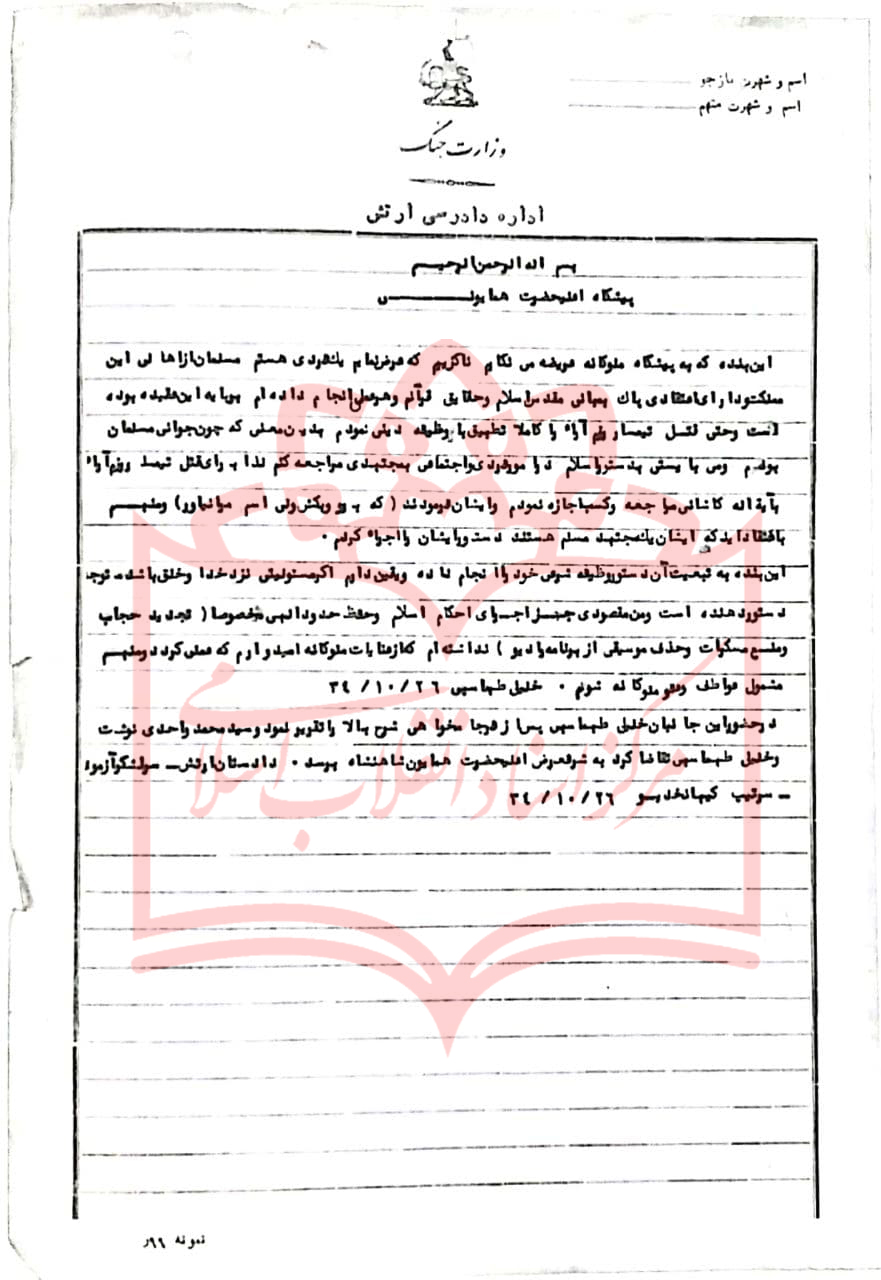 اسم و شهرت بازجو
اسم و شهرت متهم
وزارت جنگ
اداره دادرسی ارتش
بسم اله الرحمن الرحیم
پیشگاه اعلیحضرت همایونی
این بنده که به پیشگاه ملوکانه عریضه می نگارم ناگزیرم که عرض نمایم یک فردی هستم مسلمان از اهالی این
مملکت و دارای اعتقادی پاک بمبانی مقدس اسلام و حقایق قرآنم و هر عملی انجام داده ام بر پایه این عقیده بوده
است و حتی قتل تیمسار رزم آراء را کاملا تطبیق با وظیفه دینی نمودم بدین معنی که چون جوانی مسلمان
بودم و می بایستی بدستور اسلام در امور فردی و اجتماعی به مجتهدی مراجعه کنم لذا برای قتل تیمسار رزم آراء
بآیة اله کاشانی مراجعه و کسب اجازه نمودم و ایشان فرمودند ( که برو بکش ولی اسم مرا نیاور ) و منهم
باعتقاد اینکه ایشان یک مجتهد مسلم هستند دستور ایشان را اجراء کردم .
این بنده به تبعیت آن دستور وظیفه شرعی خود را انجام داده و یقین دارم اگر مسئولیتی نزد خدا و خلق باشد متوجه
دستور دهنده است و من مقصودی جز اجرای احکام اسلام و حفظ حدود الهی مخصوصا ( تجدید حجاب
و منع مسکرات و حذف موسیقی از برنامه رادیو ) نداشته ام که از عنایات ملوکانه امیدوارم که عملی گردد و منهم
مشمول عواطف و عفو ملوکانه شوم . خلیل طهماسبی ۳٤/۱۰/۲٦
در حضور این جانبان خلیل طهماسبی پس از فرجا مخواهی شرح بالا را تقریر نمود و سید محمد واحدی نوشت
و خلیل طهماسبی تقاضا کرد به شرفعرض اعلیحضرت همایون شاهنشاه برسد . دادستان ارتش – سرلشگر آزموده
– سرتیپ کیهانخدیو ۳٤/۱۰/۲٦
مرکز اسناد انقلاب اسلامی
نمونه ۹۹ر